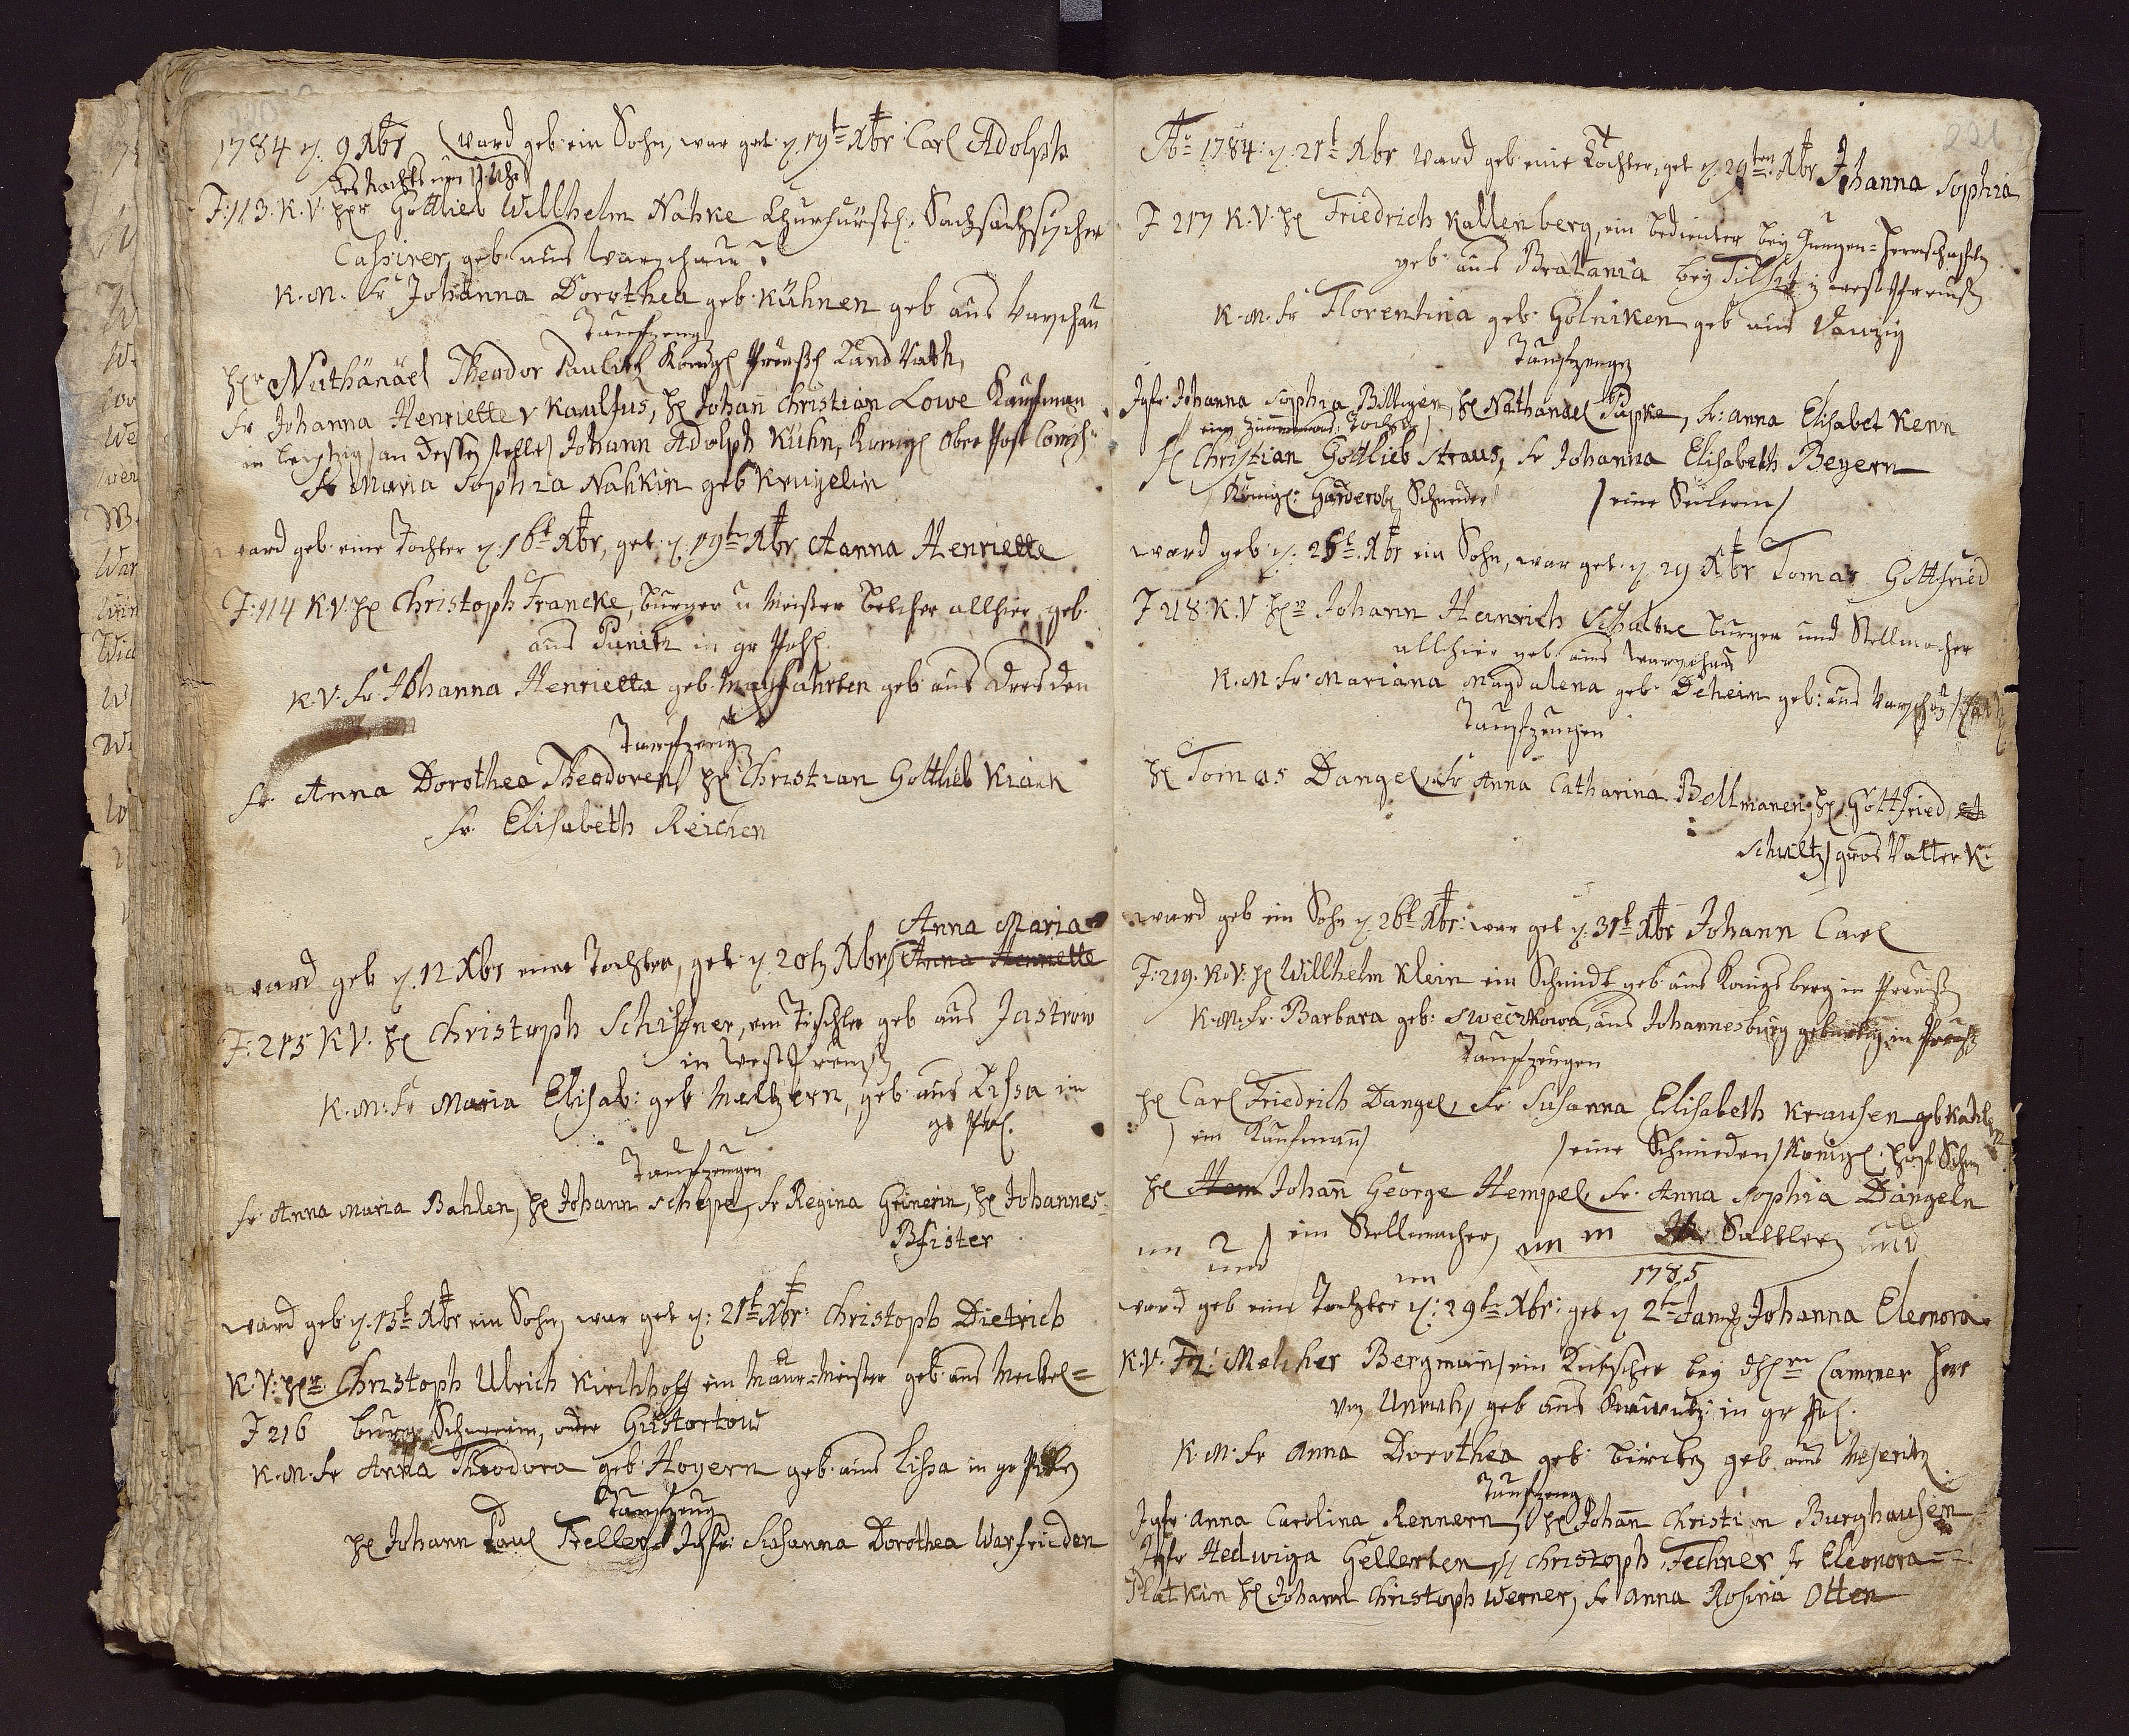 220
1784 d. 9 Xbr ward geb ein Sohn, war get. d. 19t Xbr Carl Adolph
des Nachts um 11 Uhr
F: 113. K. V. Herr Gottlieb Willhelm Nahke Churfürstl:
Cassirer, geb: aus Warschau
K. M. Fr Johanna Dorothea geb: Kühnen geb aus Warschau
Taufzeug
Herr Nathänäel Theodor Paulisch Königl Preußl Land Rath,
Fr Johanna Henriette v Kaulfus, H Johan Christian Lowe Kaufman
in Leipzig / an dessen stelle / Johann Adolph Kühn, Königl Ober Post Comis:
Fr Maria Sophia Nahkin geb Krugelin
ward geb. eine Tochter d. 16t Xbr, get. d. 19t Xbr Hanna Henriette
F: 114 K. V. H Christoph Francke, burger u Meister allhier, geb.
aus Punitz in gr Pohl.
K. V. Fr. Johanna Henrietta geb. Mayfahrten geb aus Dresden
Taufzeug
Fr. Anna Dorothea Theodoren / H Christian Gottlieb Kiack
Fr. Elisabeth Reichen
Anna Maria
ward geb d. 12 Xbr eine Tochter, get d. 20ty Xbr / Anna Henriette
F: 215 K V. H Christoph Schiffner, ein Tischler geb aus Jastrow
in Westpreuss
K. M: Fr Maria Elisab: geb Meltzern, geb. aus Lissa in
gr Pol.
Taufzeugen
Fr. Anna Maria Bahlen, H Johann Schepe, Fr Regina Grinerin, H Johannes
Bfister
ward geb. d. 15t Xbr ein Sohn, war get d: 21t Xbr: Christoph Dietrich
K. V: Herr Christoph Ulrich Kirchhoff ein Maur=Meister geb aus Meckel=
F 216 burg Schwerin, oder Güstortow
K. M. Fr Anna Theodora geb. Hoyern geb. aus Lissa in gr Pohlen
Taufzeug
H Johann Paul Treller / Jgfr: Susanna Dorothea Warfrieden
221
Ao 1784: d. 21t Xbr ward geb eine Tochter, get d. 29ten Xbr Johanna Sophia
F 217 K. V. H Friedrich Kallenberg, ein bedienter bey Herrschaften
geb: aus Bratania bey Tilsit
K. M. Fr Florentina geb: Golniken geb aus Danzig
Taufzeugen
Jgfr. Johanna Sophia Billigen, H Nathanael Pupke, Fr: Anna Elisabet Kenn
/ eine Zimmermans: Tochter /
H Christian Gottlieb Straus, Fr Johanna Elisabeth Beyern
/ Königl: Garderobe Schneider / / eine Seilerin /
ward geb. d. 26t. Xbr ein Sohn, war get. d. 29 Xbr Tomas Gottfried
F 218. K. V Herr Johann Heinrich Schultze burger und Stellmacher
allhier geb. aus Warschau
K. M. Fr. Mariana Magdalena geb. Dehein geb: aus Warschau
Taufzeuchen
H Tomas Dangel, Fr Anna Catharina Bellmanen, H. Gottfried
Schultz / gros Vatter K.
ward geb ein Sohn d. 26t Xbr: war get d: 31t Xbr Johann Carl
F: 219. K. V: H Willhelm Klein ein Schmidt geb aus Königsberg in Preuss
K. M. Fr. Barbara geb: Sweczkowa, aus Johannesburg gebürtig in Preuss
Taufzeugen
H Carl Friedrich Dangel, Fr Susanna Elisabeth Krausen geb Kahlen
/ ein Kaufmann / / eine Schmieden / Königl: Hof Schm
H Hem Johan George Hempel, Fr. Anna Sophia Dangeln
ein Stellmacher, Sattlern
1785
ward geb eine Tochter d: 29t Xbr: get d 2t Jan Johanna Eleonora
K. V. Fr: Melcher Bergman / ein Kutscher bey Cammer Herr
von Unruh, geb aus in gr Pol.
K. M. Fr Anna Dorothea geb. bürcken geb aus Meseritz
Taufzeug
Jgfr. Anna Carolina Rennern, H Johan Christian Burghausen
Jgfr Hedwiga Gellerten, H Christoph Fechner Fr Eleonora
Platkin H Johann Christoph Werner, Fr Anna Rosina Otten